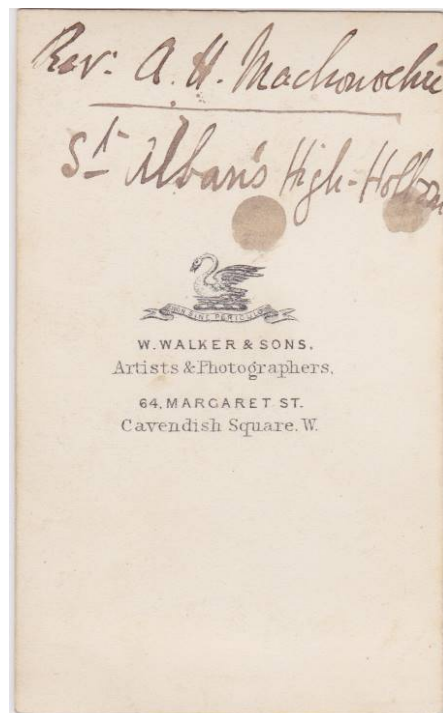 Rev: A. H. Mackonochie
St Alban's High-Holborn
SINE PERICULO
W. WALKER & SONS.
Artists & Photographers,
64, MARGARET ST.
Cavendish Square. W.